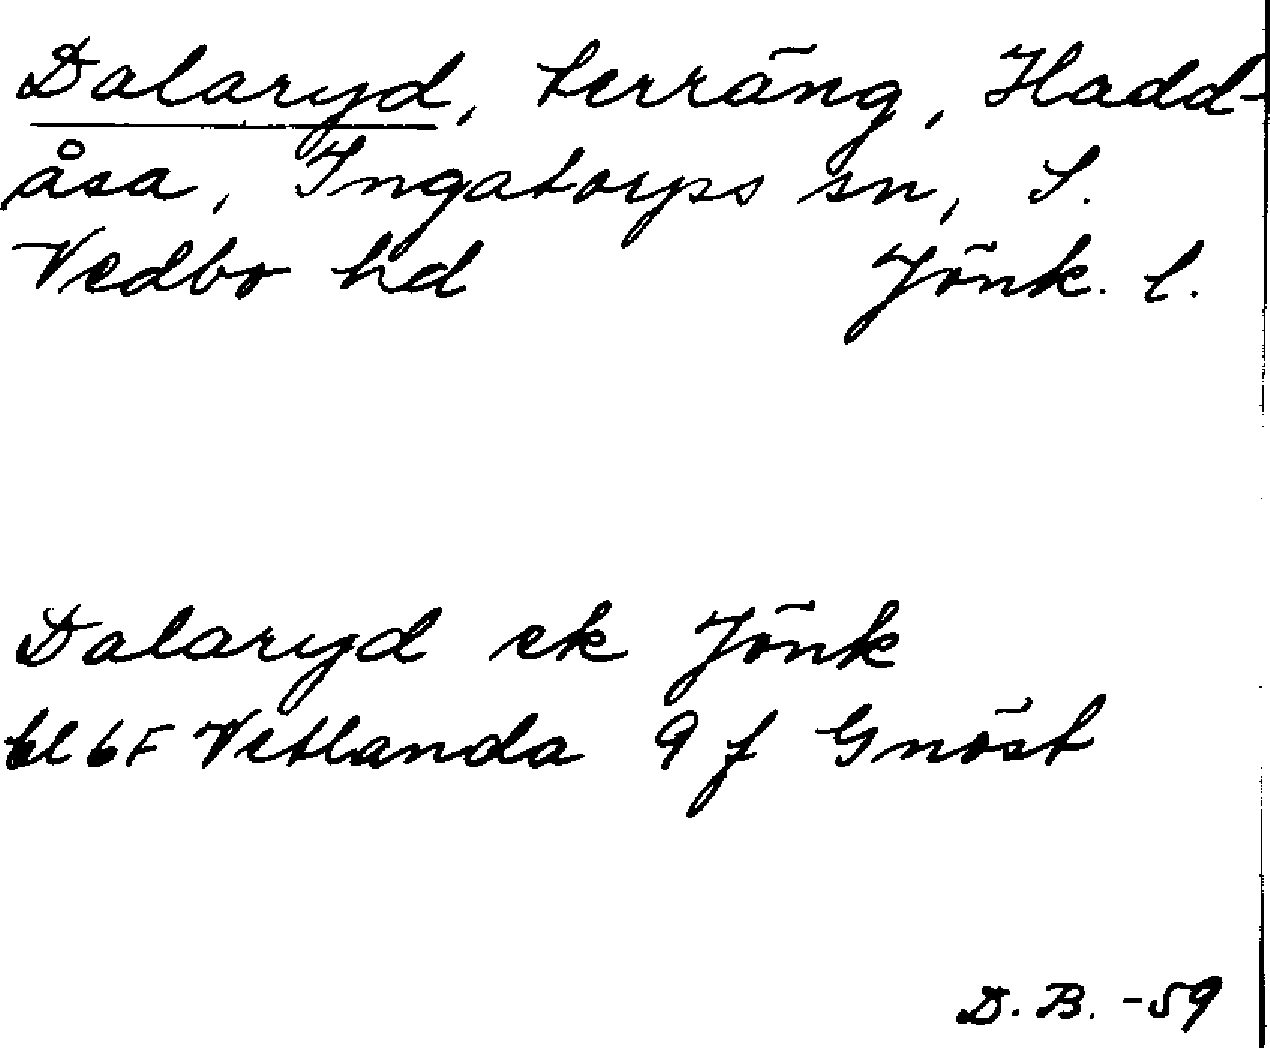 Dalaryd, terräng, Hadd-
åsa, Ingatorps sn, S.
Vedbo hd Jönk. l.
Dalaryd ek Jönk
bl 6F Vetlanda 9 f Gnöst
D. B. -59